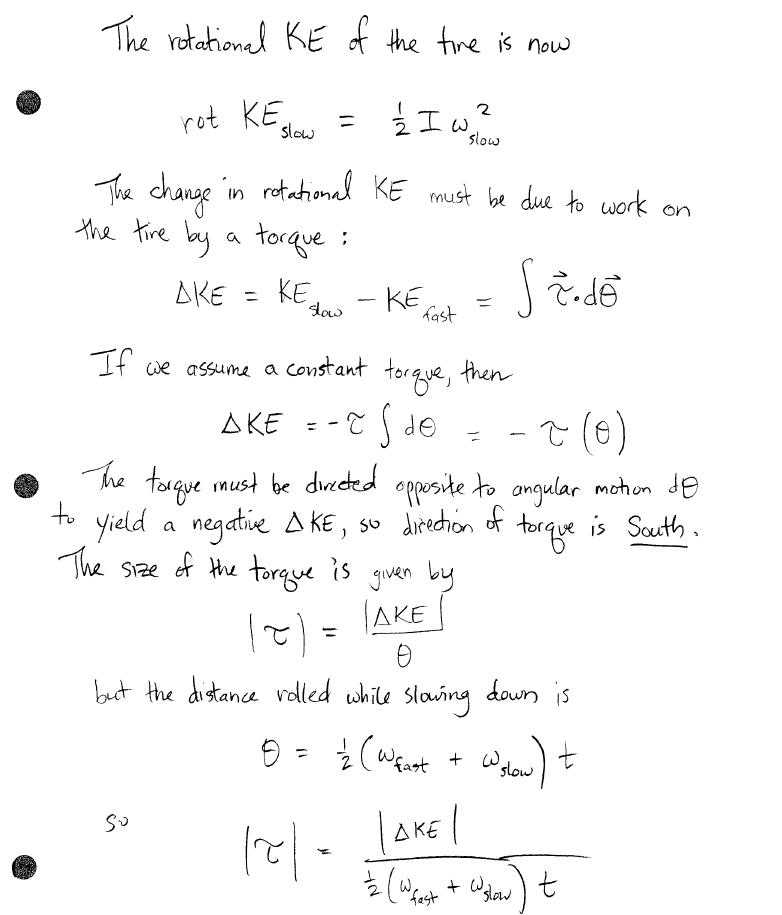 The rotational KE of the tire is now
rot KE_slow = ½ I ω_slow²
The change in rotational KE must be due to work on
the tire by a torque :
ΔKE = KE_slow − KE_fast = ∫ τ⃗·dθ⃗
If we assume a constant torque, then
ΔKE = −τ ∫ dθ = − τ (θ)
The torque must be directed opposite to angular motion dθ
to yield a negative ΔKE, so direction of torque is South.
The size of the torque is given by
|τ| = |ΔKE| / θ
but the distance rolled while slowing down is
θ = ½ (ω_fast + ω_slow) t
so
|τ| = |ΔKE| / ½ (ω_fast + ω_slow) t